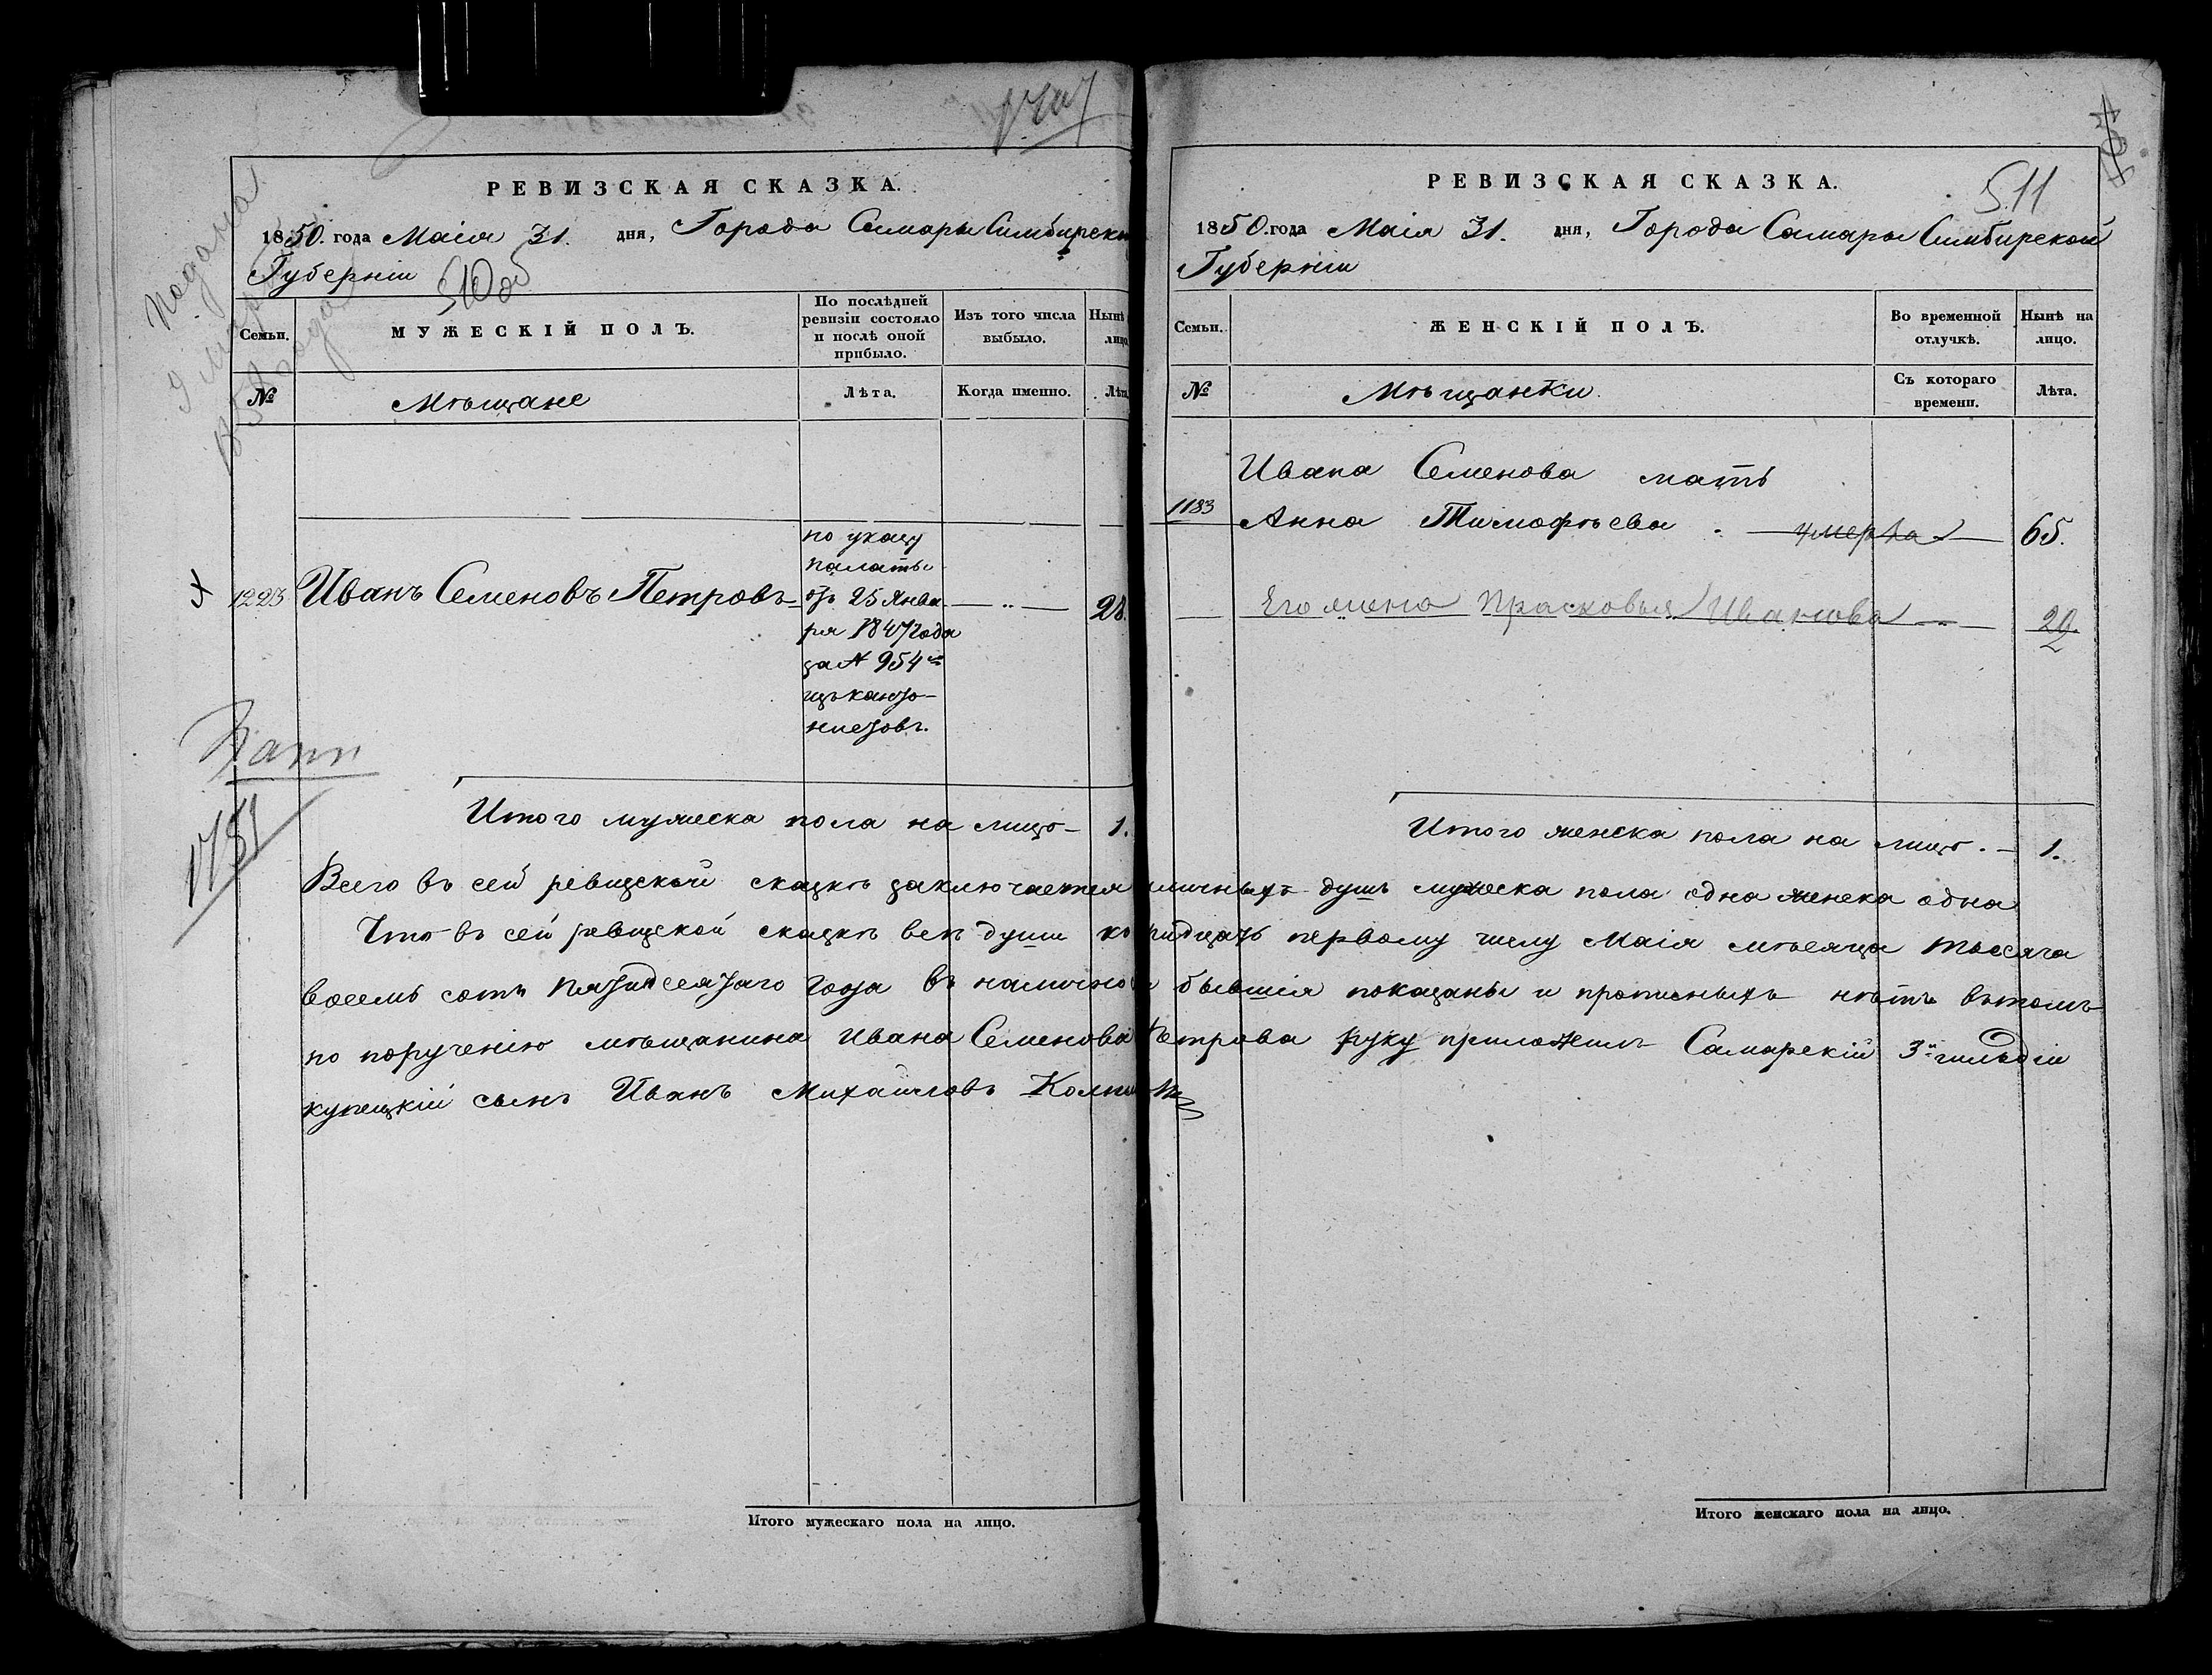 РЕВИЗСКАЯ СКАЗКА.
1850. года Маія 31. дня, Города Самары Симбирской
Губерніи
510 об
Подана
9 Марта
года
Семьи.
МУЖЕСКІЙ ПОЛЪ.
По послѣдней ревизіи состояло и послѣ оной прибыло.
Изъ того числа выбыло.
Нынѣ лицо
№
Мѣщане
Лѣта.
Когда именно.
Лѣта
1223
Иванъ Семеновъ Петровъ
по указу
палаты
отъ 25 Янва
ря 1847 года
за № 954
изъ канто-
нистовъ.
28.
1781
Итого мужеска пола на лицо - 1.
РЕВИЗСКАЯ СКАЗКА.
511
1850. года Маія 31. дня, Города Самары Симбирской
Губерніи
Семьи.
ЖЕНСКІЙ ПОЛЪ.
Во временной отлучкѣ.
Нынѣ на лицо.
№
Мѣщанки.
Съ котораго времени.
Лѣта.
Ивана Семенова мать
1183 Анна Тимофѣева умерла 65.
Его жена Прасковья Иванова 29.
Итого женска пола на лицо. - 1.
Всего въ сей ревизской сказкѣ заключается личныхъ душъ мужеска пола одна женска одна
Что въ сей ревизской сказкѣ всѣ души къ тридцать первому числу Маія мѣсяца тысяча
восемь сотъ пятидесятаго года въ налично бывшія показаны и прописныхъ нѣтъ вътомъ
по порученію мѣщанина Ивана Семенова Петрова руку приложилъ Самарскій 3й гильдіи
купецкій сынъ Иванъ Михайловъ
Итого мужескаго пола на лицо.
Итого женскаго пола на лицо.